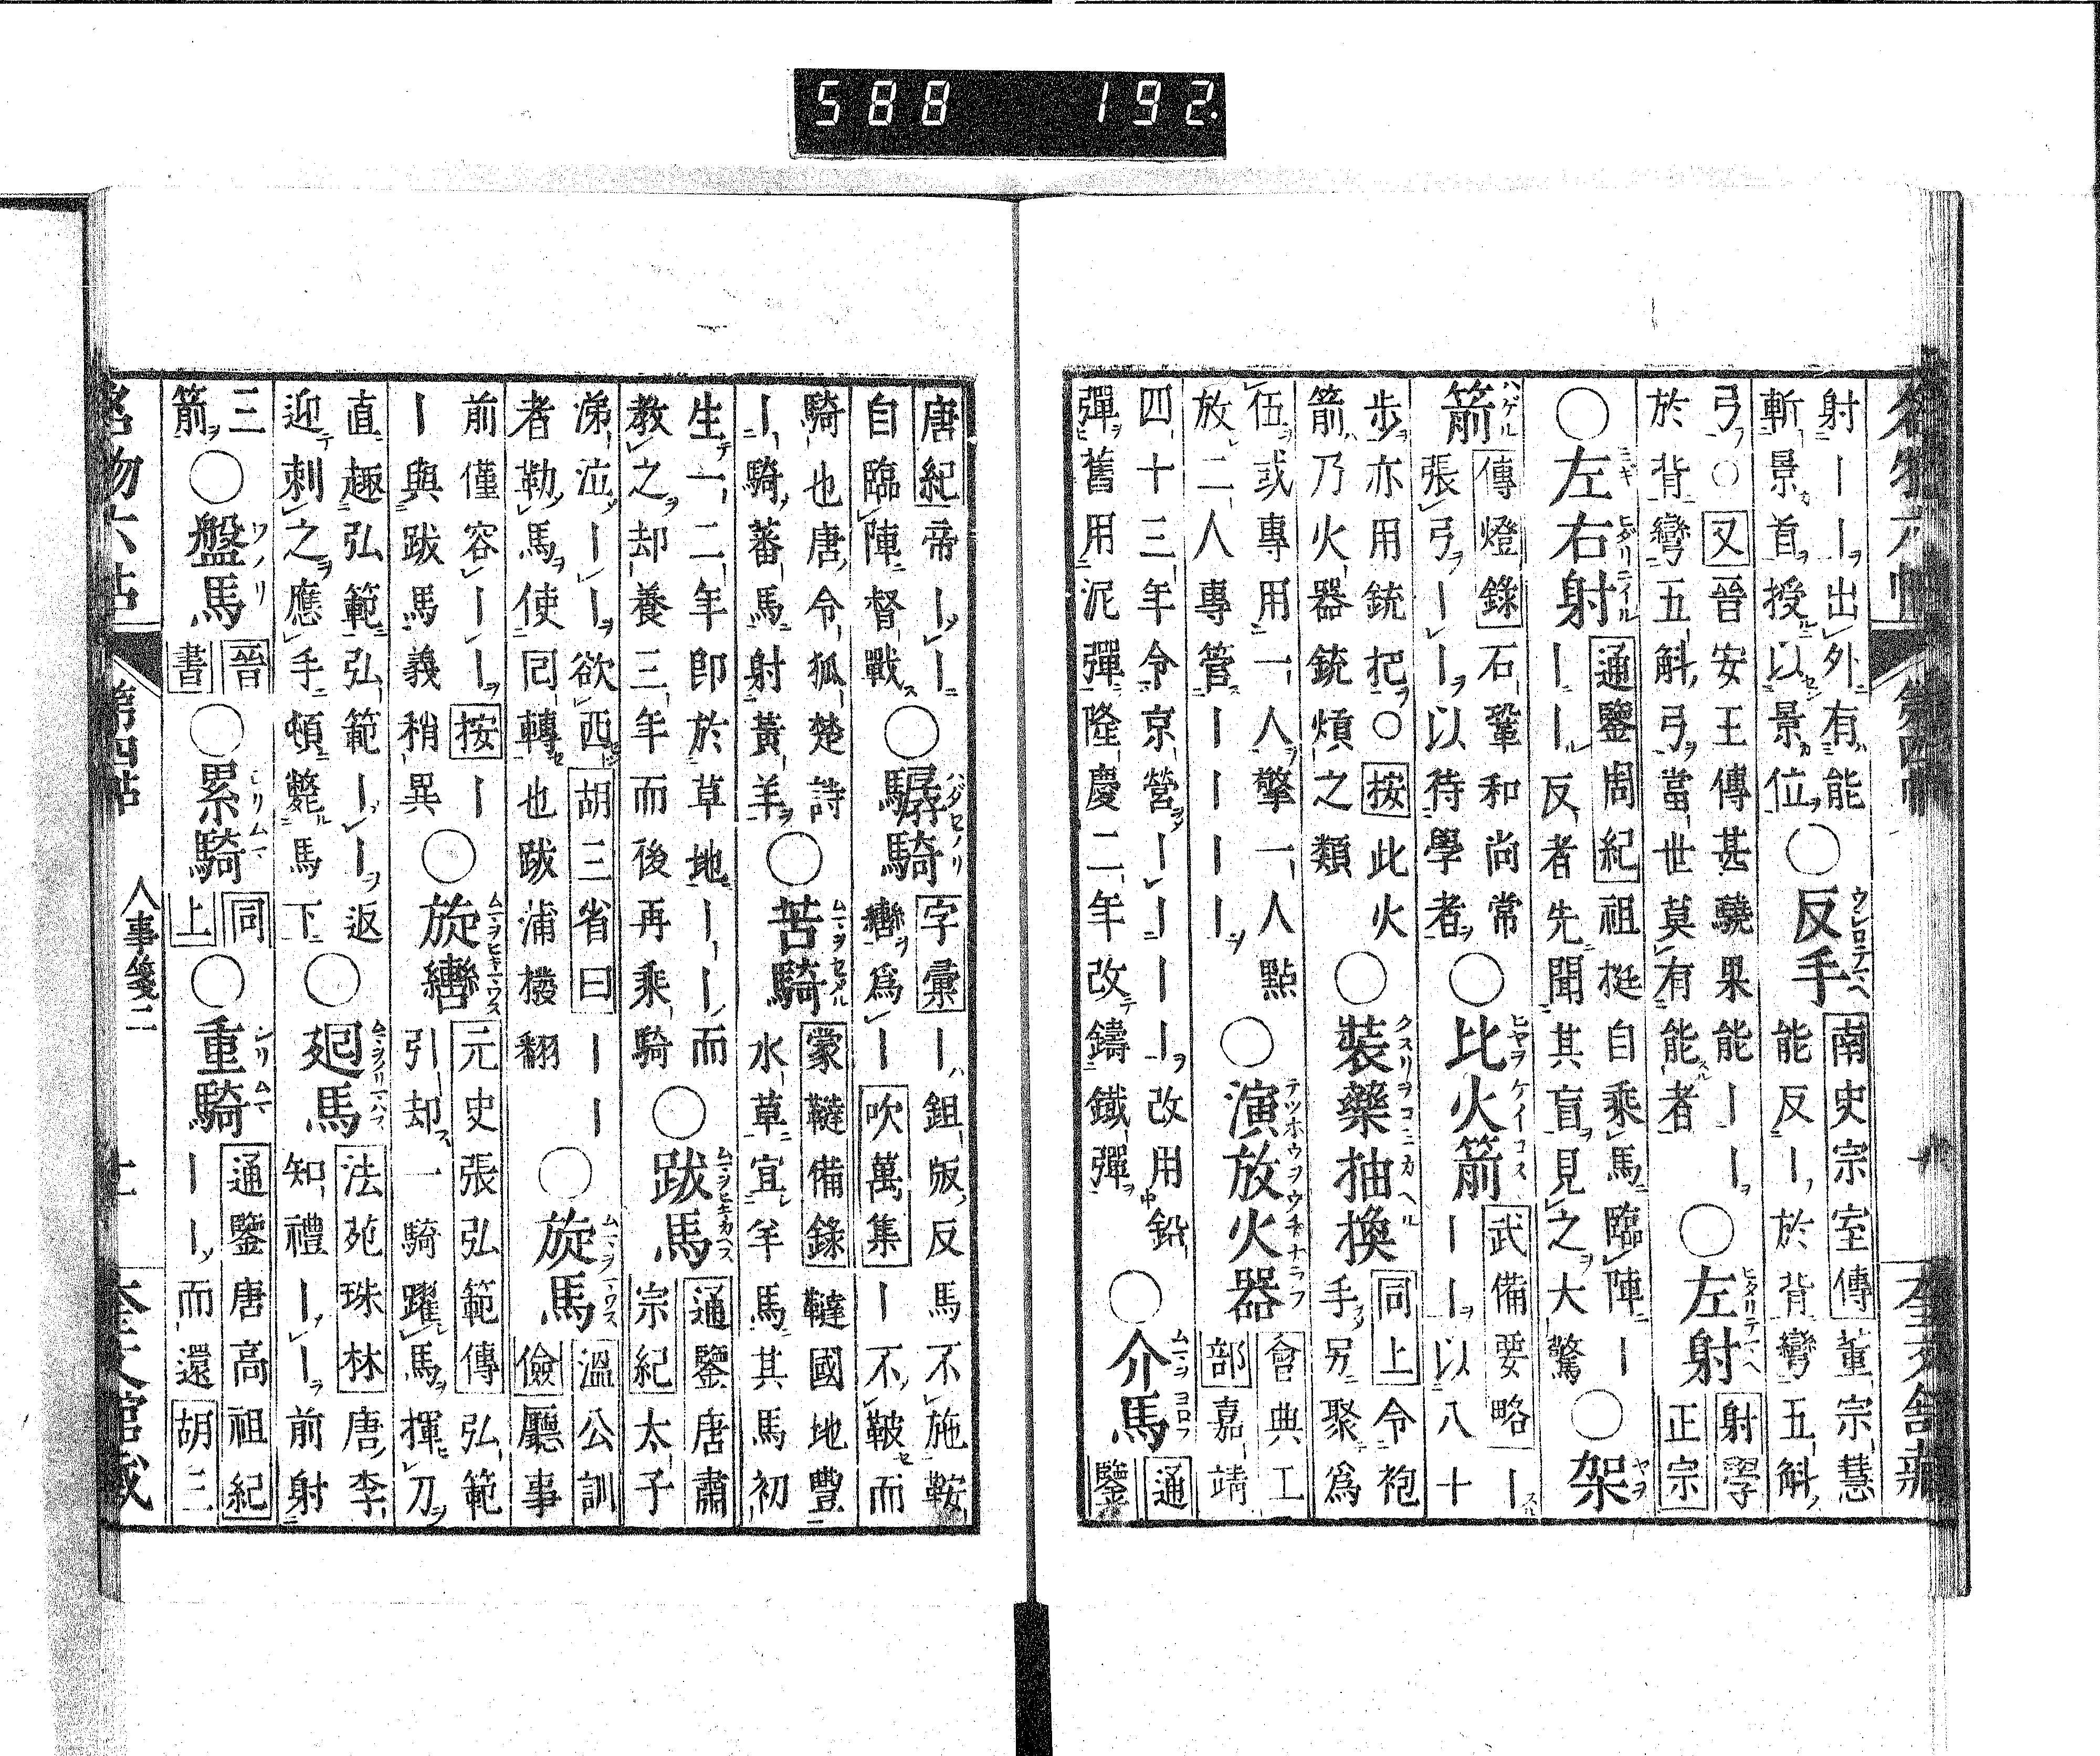 588 192.
名物六帖 第四帖 十 奎文館藏
射ーー出外有能
斬景首授以景位
○反手
南史宗室傳董宗慧
能反ー於背彎五斛
弓○又晉安王傳甚驍果能ーー
於背彎五斛弓當世莫有能者
○左射
射學
正宗
○左右射
通鑒周紀祖挺自乘馬臨陣ー
ーー反者先聞其盲見之大驚
○架
箭
傳燈錄石鞏和尚常
張弓ーー以待學者
○比火箭
武備要略ー
ーー以八十
步亦用銃把○按此火
箭乃火器銃熕之類
○裝藥抽換
同上令袍
手另聚爲
伍或專用一人擎一人點
放二人專管ーーーー
○演放火器
會典工
部嘉靖
四十三年令京營ーーーー改用鉛
彈舊用泥彈隆慶二年改鑄鐵彈
○介馬
通
鑒
唐紀帝ーー
自臨陣督戰
○驏騎
字彙ー鉏版反馬不施鞍
轡爲ー吹萬集ー不鞁而
騎也唐令狐楚詩
ー騎蕃馬射黃羊
○苦騎
蒙韃備錄韃國地豐
水草宜羊馬其馬初
生一二年即於草地ーー而
教之却養三年而後再乘騎
○跋馬
通鑒唐肅
宗紀太子
涕泣ーー欲西胡三省曰ーー
者勒馬使囘轉也跋蒲撥翻
○旋馬
溫公訓
儉廳事
前僅容ーー按ー
ー與跋馬義稍異
○旋轡
元史張弘範傳弘範
引却一騎躍馬揮刀
直趣弘範弘範ーー返
迎刺之應手頓斃馬下
○廻馬
法苑珠林唐李
知禮ーー前射
三
箭
○盤馬
晉
書
○累騎
同
上
○重騎
通鑒唐高祖紀
ーー而還胡三
名物六帖 第四帖 人事箋二 十一 奎文館藏